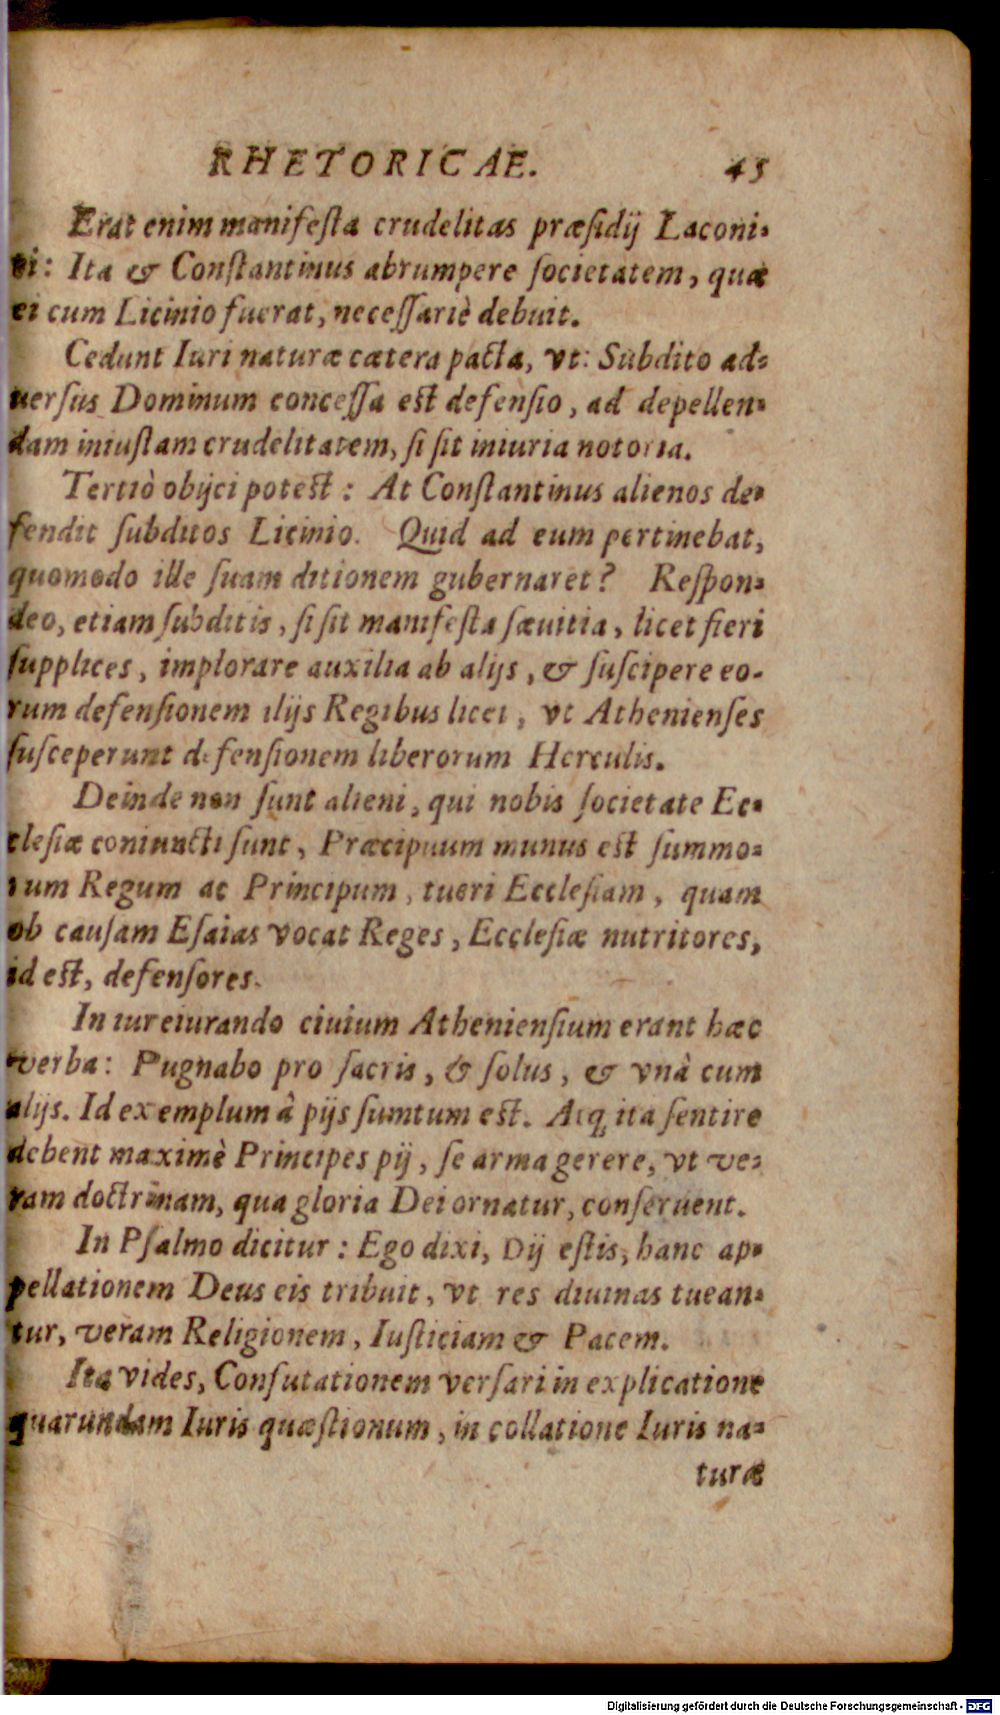 RHETORICAE. 45
Erat enim manifesta crudelitas præsidij Laconi-
ci: Ita & Constantinus abrumpere societatem, quæ
ei cum Licinio fuerat, necessariè debuit.
Cedunt Iuri naturæ cætera pacta, vt: Subdito ad-
uersus Dominum concessa est defensio, ad depellen-
dam iniustam crudelitatem, si sit iniuria notoria.
Tertiò obijci potest: At Constantinus alienos de-
fendit subditos Licinio. Quid ad eum pertinebat,
quomodo ille suam ditionem gubernaret? Respon-
deo, etiam subditis, si sit manifesta sæuitia, licet fieri
supplices, implorare auxilia ab alijs, & suscipere eo-
rum defensionem alijs Regibus licet, vt Athenienses
susceperunt defensionem liberorum Herculis.
Deinde non sunt alieni, qui nobis societate Ec-
clesiæ coniuncti sunt, Præcipuum munus est summo-
rum Regum ac Principum, tueri Ecclesiam, quam
ob causam Esaias vocat Reges, Ecclesiæ nutritores,
id est, defensores.
In iureiurando ciuium Atheniensium erant hæc
verba: Pugnabo pro sacris, & solus, & vnà cum
alijs. Id exemplum à pijs sumtum est. Atq; ita sentire
debent maximè Principes pij, se arma gerere, vt ve-
ram doctrinam, qua gloria Dei ornatur, conseruent.
In Psalmo dicitur: Ego dixi, Dij estis, hanc ap-
pellationem Deus eis tribuit, vt res diuinas tuean-
tur, veram Religionem, Iusticiam & Pacem.
Ita vides, Confutationem versari in explicatione
quarundam Iuris quæstionum, in collatione Iuris na-
turæ
Digitalisierung gefördert durch die Deutsche Forschungsgemeinschaft - DFG